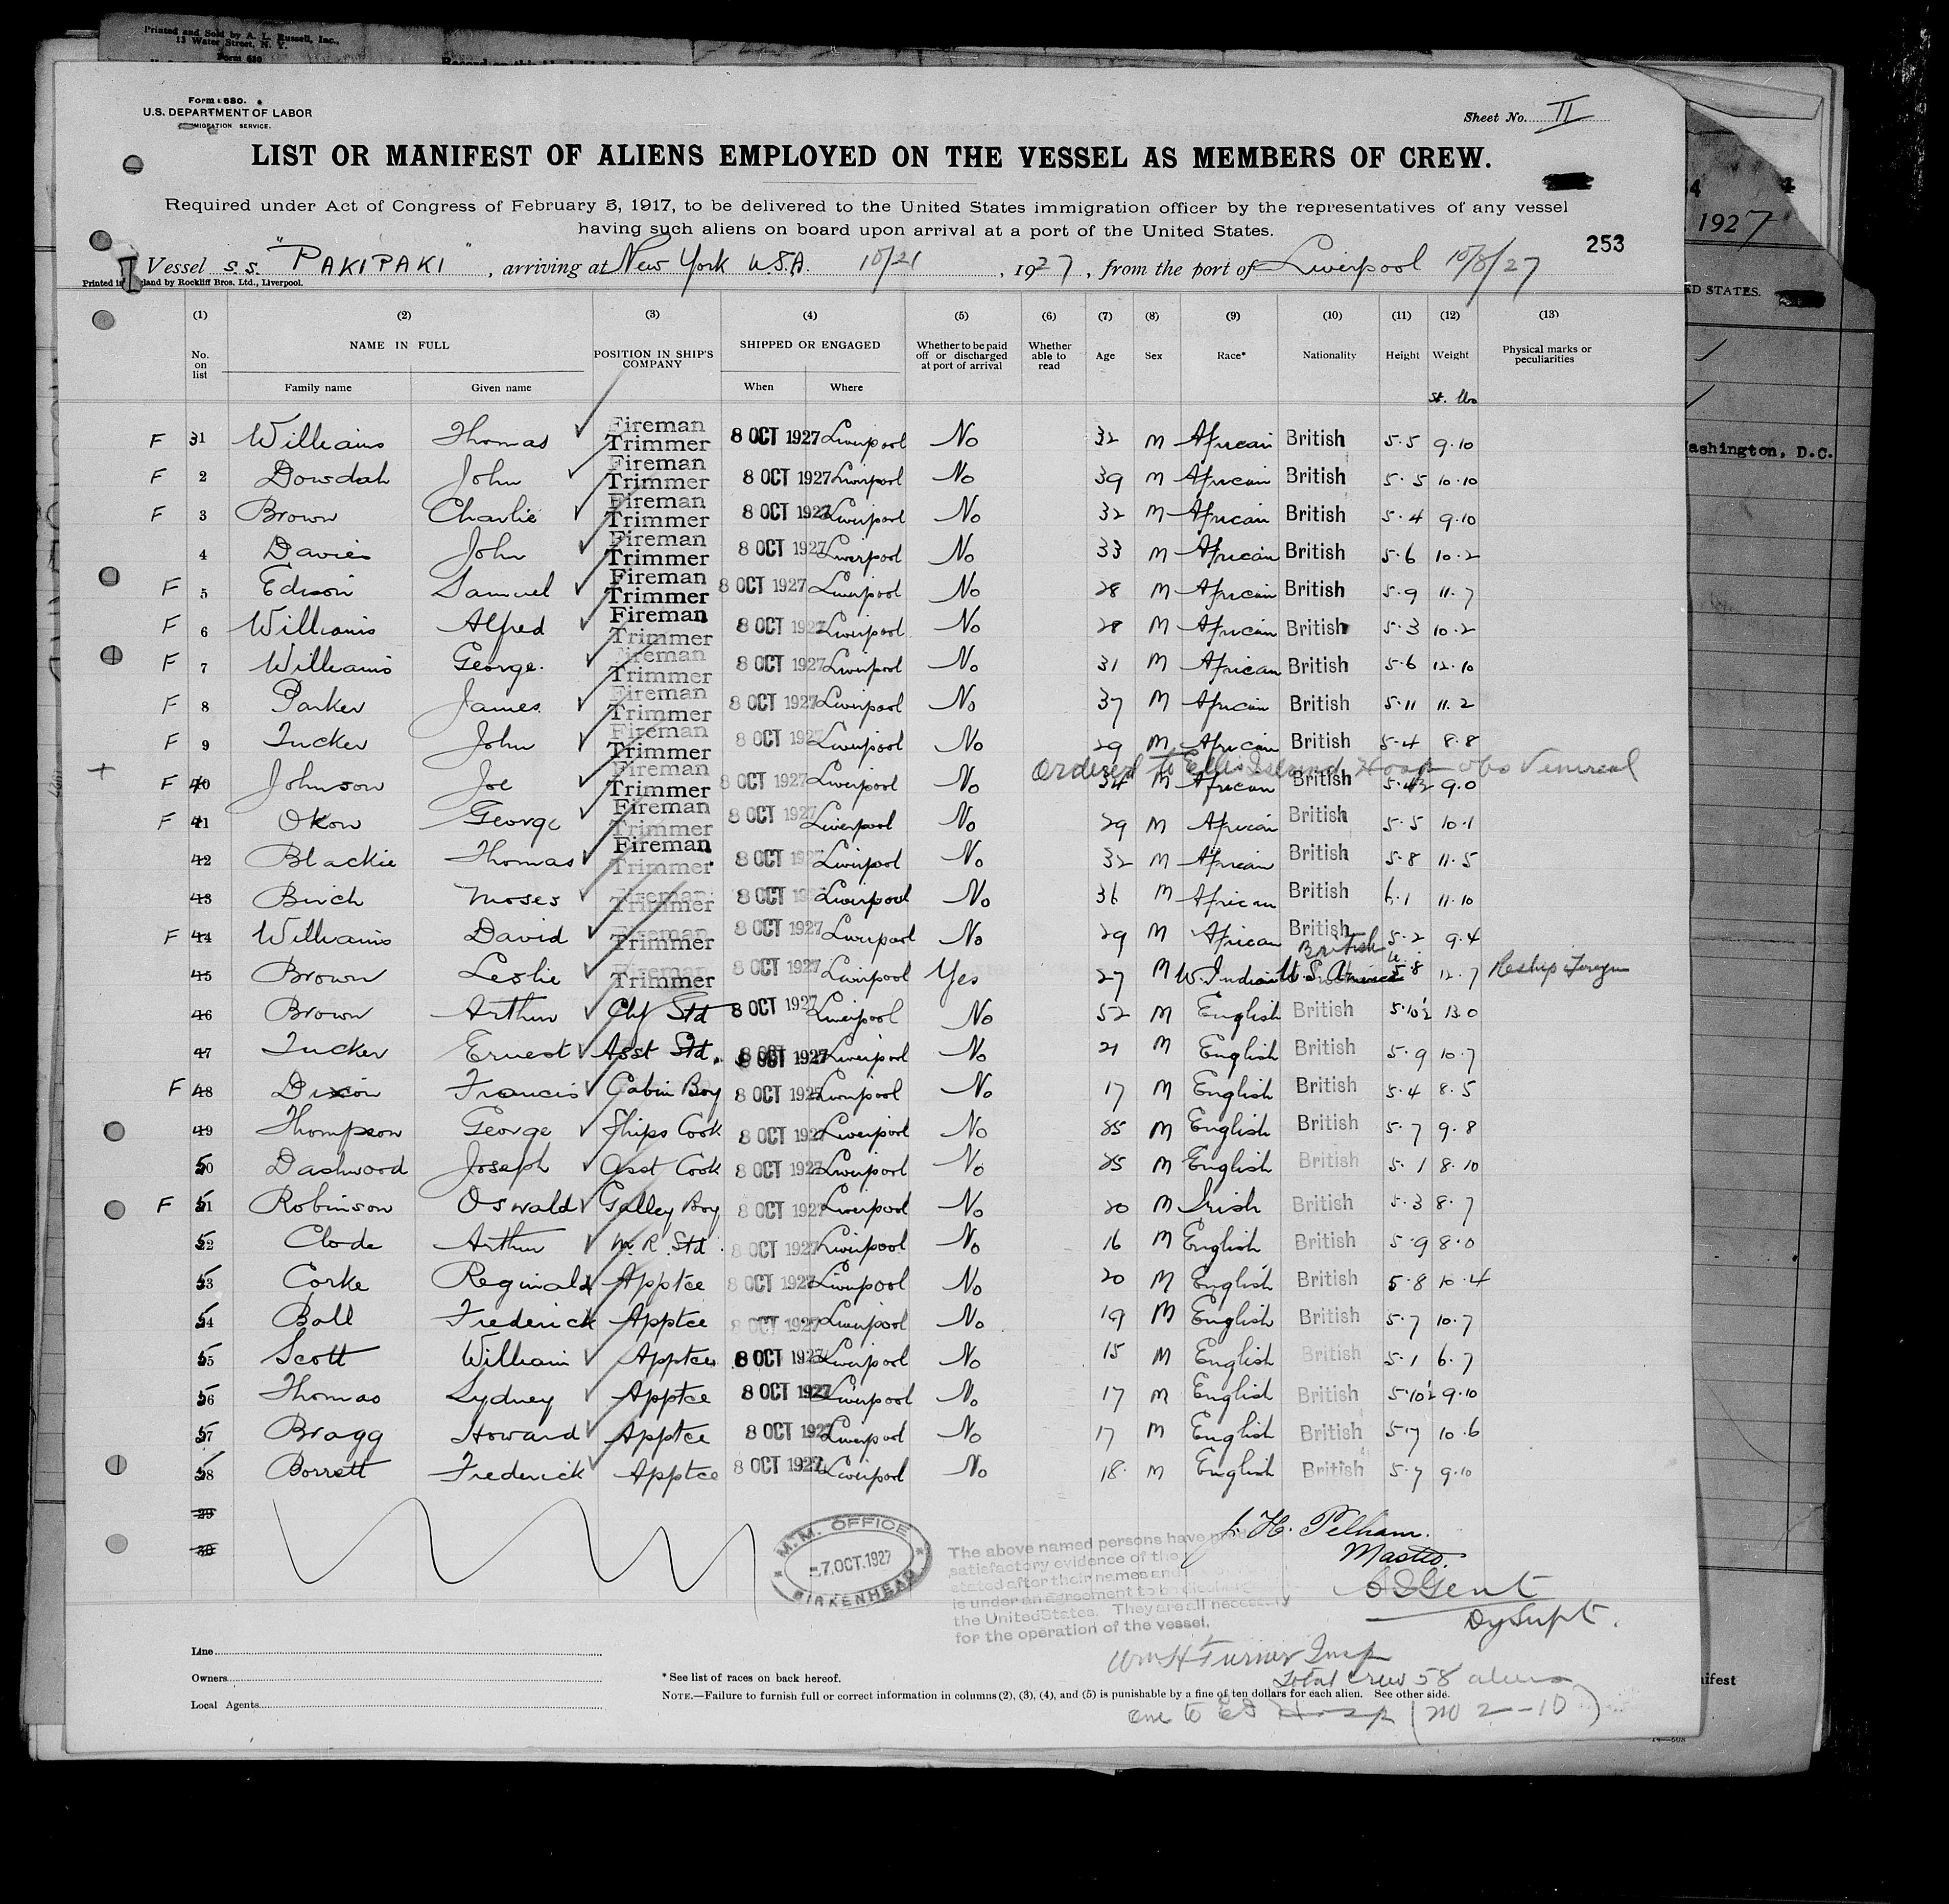 Printed and Sold by A. L. Russell, Inc.,
13 Water Street, N. Y.
Form 680
Form 680.
U.S. DEPARTMENT OF LABOR
IMMIGRATION SERVICE.
Sheet No. II
LIST OR MANIFEST OF ALIENS EMPLOYED ON THE VESSEL AS MEMBERS OF CREW.
Required under Act of Congress of February 5, 1917, to be delivered to the United States immigration officer by the representatives of any vessel
having such aliens on board upon arrival at a port of the United States.
253
1927
Vessel s.s. "PAKIPAKI", arriving at New York U.S.A. 10/21, 1927, from the port of Liverpool 10/8/27
Printed in England by Rockliff Bros. Ltd., Liverpool.
ED STATES.
(1) (2) (3) (4) (5) (6) (7) (8) (9) (10) (11) (12) (13)
No. on list NAME IN FULL Family name Given name POSITION IN SHIP'S COMPANY SHIPPED OR ENGAGED When Where Whether to be paid off or discharged at port of arrival Whether able to read Age Sex Race* Nationality Height Weight Physical marks or peculiarities
St. lbs
F 31 Williams Thomas Fireman Trimmer 8 OCT 1927 Liverpool No 32 M African British 5.5 9.10
ashington, D.C.
F 2 Dowdah John Fireman Trimmer 8 OCT 1927 Liverpool No 39 M African British 5.5 10.10
F 3 Brown Charlie Fireman Trimmer 8 OCT 1927 Liverpool No 32 M African British 5.4 9.10
4 Davies John Fireman Trimmer 8 OCT 1927 Liverpool No 33 M African British 5.6 10.2
F 5 Edison Samuel Fireman Trimmer 8 OCT 1927 Liverpool No 28 M African British 5.9 11.7
F 6 Williams Alfred Fireman Trimmer 8 OCT 1927 Liverpool No 28 M African British 5.3 10.2
F 7 Williams George Fireman Trimmer 8 OCT 1927 Liverpool No 31 M African British 5.6 12.10
F 8 Parker James Fireman Trimmer 8 OCT 1927 Liverpool No 37 M African British 5.11 11.2
F 9 Tucker John Fireman Trimmer 8 OCT 1927 Liverpool No 29 M African British 5.4 8.8
Ordered to Ellis Island Hosp obs Venereal
+ F 40 Johnson Joe Fireman Trimmer 8 OCT 1927 Liverpool No 34 M African British 5.4½ 9.0
F 41 Okow George Fireman Trimmer 8 OCT 1927 Liverpool No 29 M African British 5.5 10.1
42 Blackie Thomas Fireman Trimmer 8 OCT 1927 Liverpool No 32 M African British 5.8 11.5
43 Birch Moses Fireman Trimmer 8 OCT 1927 Liverpool No 36 M African British 6.1 11.10
F 44 Williams David Fireman Trimmer 8 OCT 1927 Liverpool No 29 M African British 5.2 9.4
British
45 Brown Leslie Fireman Trimmer 8 OCT 1927 Liverpool Yes 27 M W. Indian U.S. America 5.8 12.7 Reship Foreign
46 Brown Arthur Chf Std 8 OCT 1927 Liverpool No 52 M English British 5.10½ 13.0
47 Tucker Ernest Asst Std. 8 OCT 1927 Liverpool No 21 M English British 5.9 10.7
F 48 Dixon Francis Cabin Boy 8 OCT 1927 Liverpool No 17 M English British 5.4 8.5
49 Thompson George Ships Cook 8 OCT 1927 Liverpool No 25 M English British 5.7 9.8
50 Dashwood Joseph Asst Cook 8 OCT 1927 Liverpool No 25 M English British 5.1 8.10
F 51 Robinson Oswald Galley Boy 8 OCT 1927 Liverpool No 20 M Irish British 5.3 8.7
52 Clode Arthur M. R. Std. 8 OCT 1927 Liverpool No 16 M English British 5.9 8.0
53 Corke Reginald Apptce 8 OCT 1927 Liverpool No 20 M English British 5.8 10.4
54 Ball Frederick Apptce 8 OCT 1927 Liverpool No 19 M English British 5.7 10.7
55 Scott William Apptce 8 OCT 1927 Liverpool No 15 M English British 5.1 6.7
56 Thomas Sydney Apptce 8 OCT 1927 Liverpool No 17 M English British 5.10½ 9.10
57 Bragg Howard Apptce 8 OCT 1927 Liverpool No 17 M English British 5.7 10.6
58 Borrett Frederick Apptce 8 OCT 1927 Liverpool No 18 M English British 5.7 9.10
29
30
M.M. OFFICE
27 OCT. 1927
BIRKENHEAD
J. H. Pelham.
Master.
The above named persons have
satisfactory evidence of the
stated after their names and
is under an agreement to be
the United States. They are all necessary
for the operation of the vessel.
Gent
Dy Supt.
Wm H Turner Insp
Total crew 58 aliens
one to EI Hosp (no 2-10)
Line
Owners
Local Agents
* See list of races on back hereof.
NOTE.—Failure to furnish full or correct information in columns (2), (3), (4), and (5) is punishable by a fine of ten dollars for each alien. See other side.
ifest